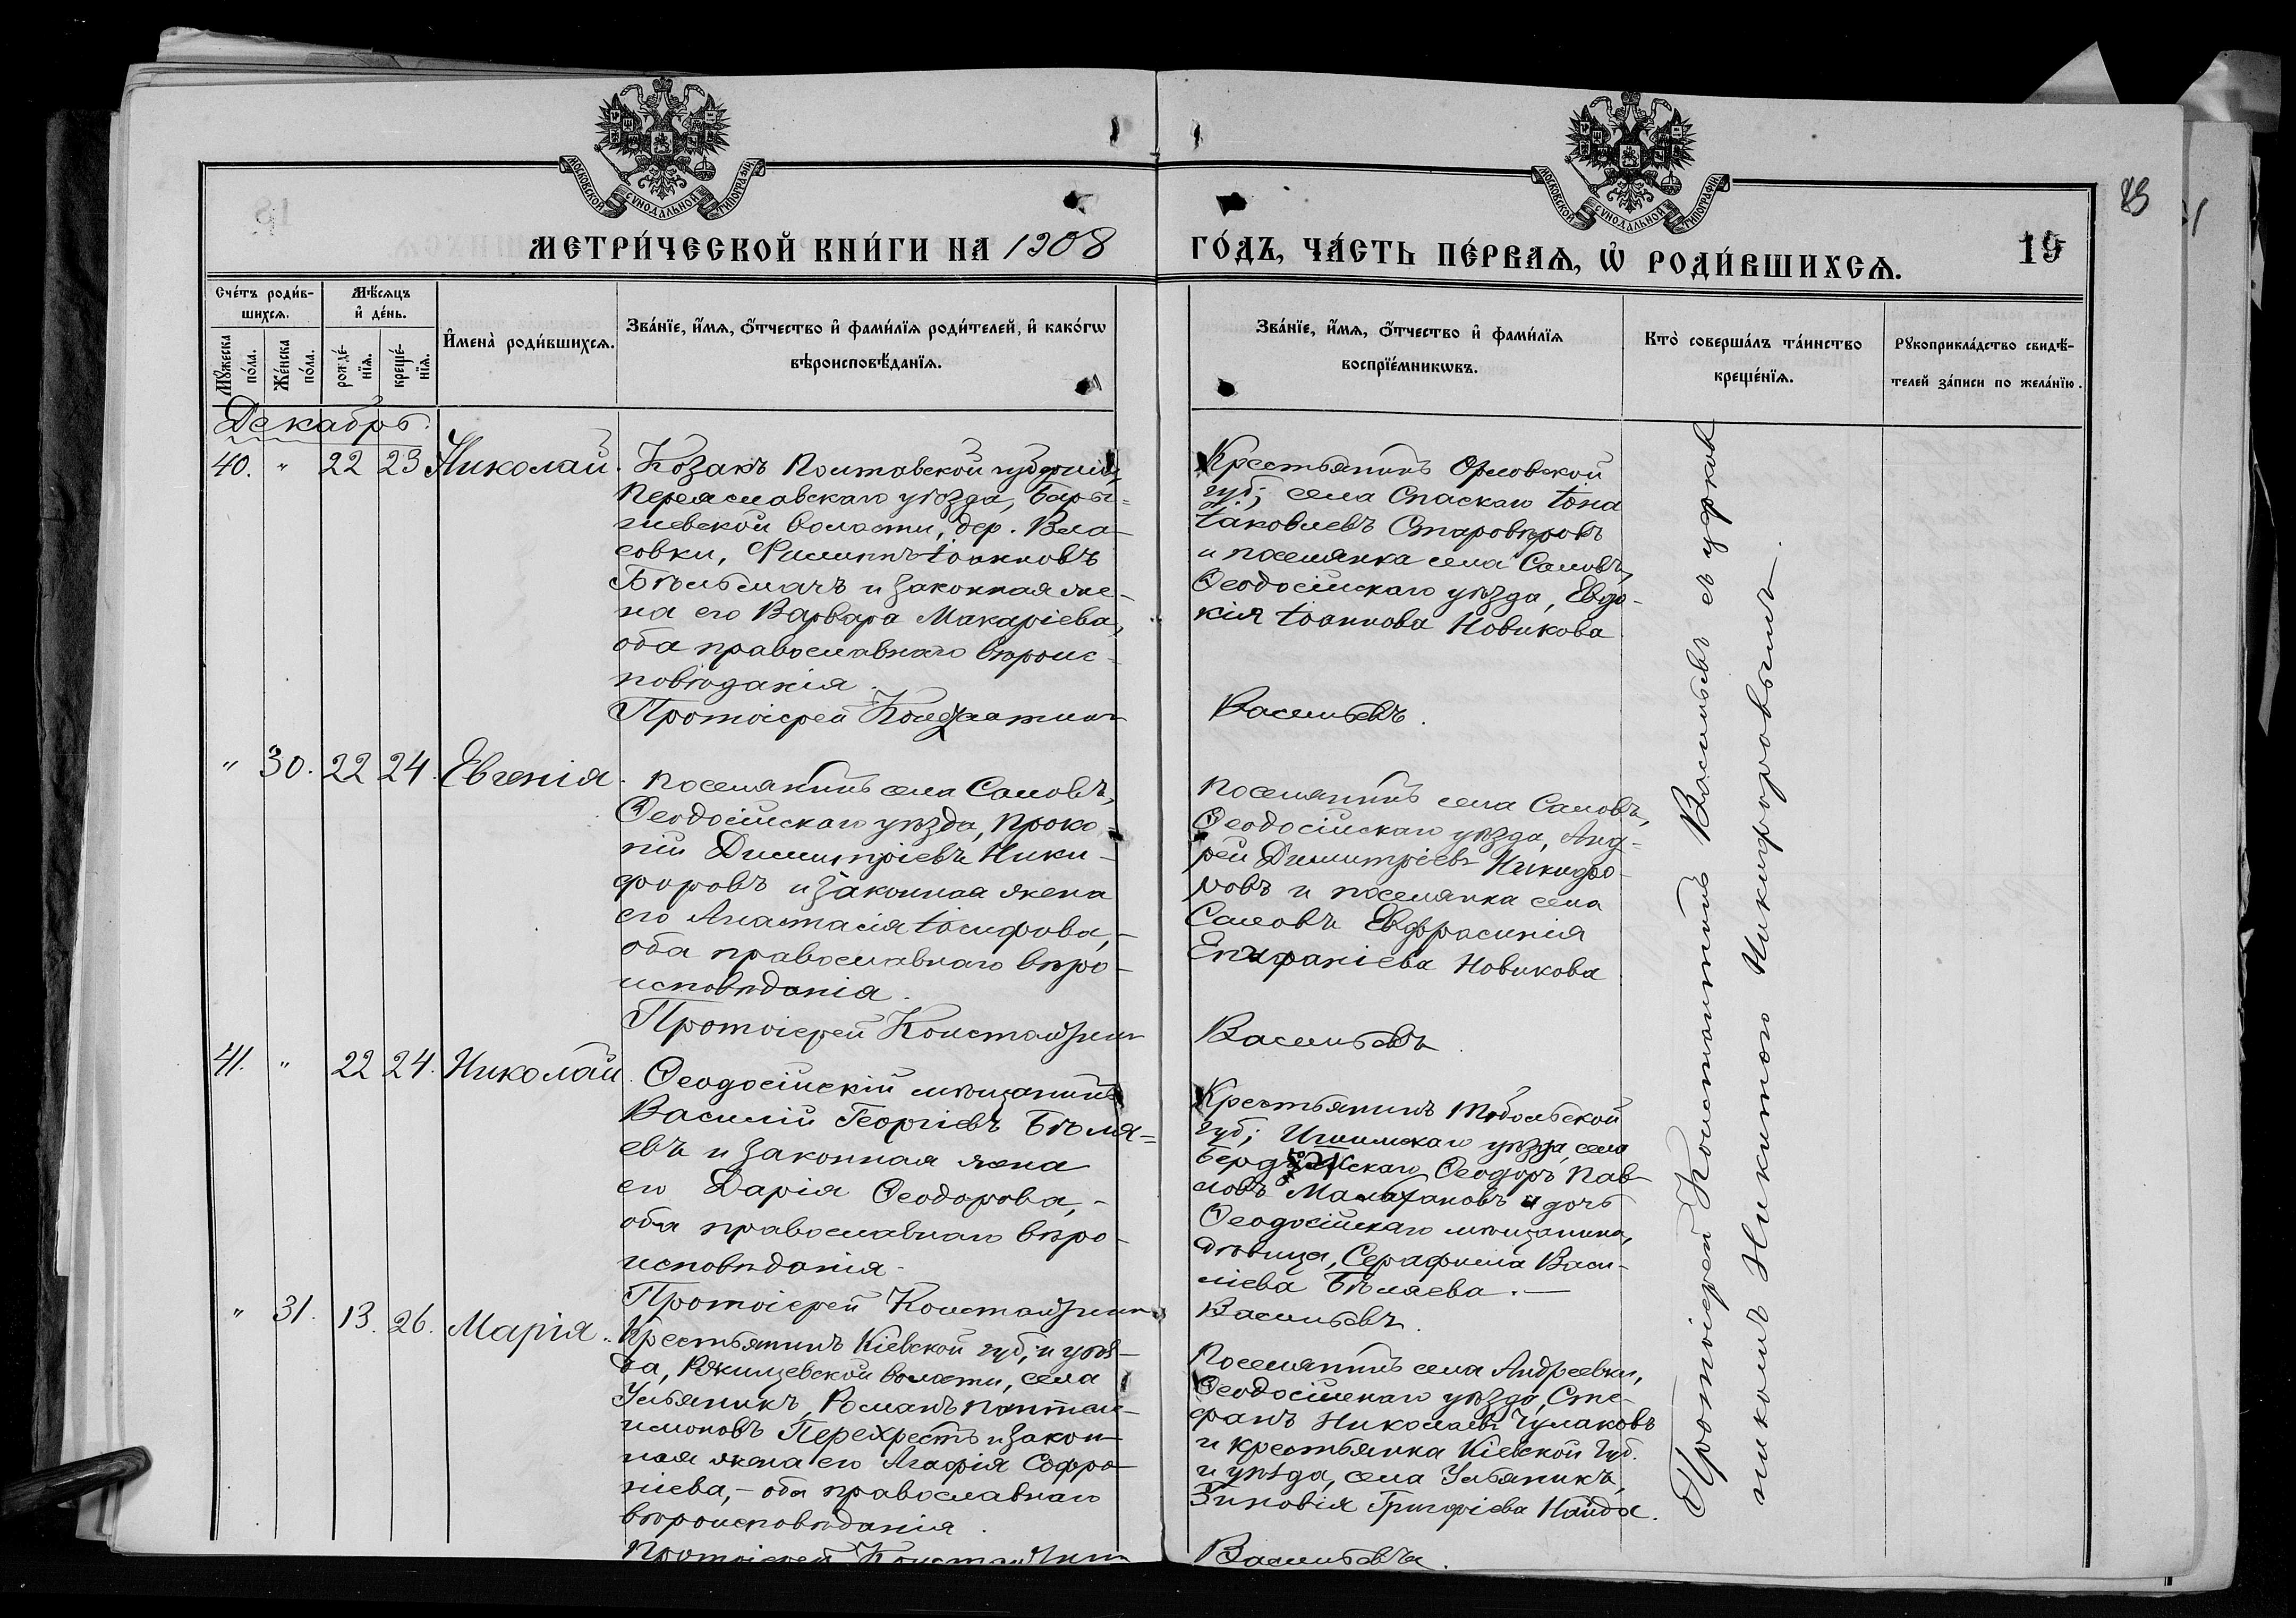 МОСКОВСКОЙ СѴНОДАЛЬНОЙ ТИПОГРАФІИ
МОСКОВСКОЙ СѴНОДАЛЬНОЙ ТИПОГРАФІИ
МЕТРИ́ЧЕСКОЙ КНИ́ГИ НА 1908
ГО́ДЪ, ЧА́СТЬ ПЕ́РВАѦ, Ѡ҆ РОДИ́ВШИХСѦ.
19
Сче́тъ роди́в-
шихсѧ.
Мѣ́сѧцъ
и҆ де́нь.
Мꙋ́жеска
по́ла.
Же́нска
по́ла.
рожде́-
нїѧ.
креще́-
нїѧ.
И҆мена̀ роди́вшихсѧ.
Зва́нїе, и҆́мѧ, ѻ҆́тчество и҆ фами́лїѧ роди́телей, и҆ како́гѡ
вѣроисповѣ́данїѧ.
Зва́нїе, и҆́мѧ, ѻ҆́тчество и҆ фами́лїѧ
воспрїе́мникѡвъ.
Кто̀ соверша́лъ та́инство
креще́нїѧ.
Рꙋкоприкла́дство свидѣ́-
телей за́писи по жела́нїю.
Декабрь.
40. " 22 23 Николай.
Козакъ Полтавской губерніи,
Переяславскаго уѣзда, Бары-
шевской волости, дер. Вла-
совки, Филиппъ Іоанновъ
Бѣльмачъ и законная же-
на его Варвара Макаріева,
оба православнаго вѣроис-
повѣданія.
Протоіерей Константинъ
Крестьянинъ Орловской
губ; села Спаскаго Іона
Іаковлевъ Старовѣровъ
и поселянка села Саловъ,
Ѳеодосійскаго уѣзда, Евдо-
кія Іоаннова Новикова
Васильевъ.
" 30. 22 24. Евгенія.
Поселянинъ села Саловъ,
Ѳеодосійскаго уѣзда, Проко-
пій Димитріевъ Ники-
форовъ и законная жена
его Анастасія Іосифова,-
оба православнаго вѣро-
исповѣданія.
Протоіерей Константинъ
Поселянинъ села Саловъ,
Ѳеодосійскаго уѣзда, Анд-
рей Димитріевъ Никифо-
ровъ и поселянка села
Саловъ Евфросинія
Епифаніева Новикова
Васильевъ.
41. " 22 24. Николай.
Ѳеодосійскій мѣщанинъ
Василій Георгіевъ Бѣля-
евъ и законная жена
его Дарія Ѳеодорова,-
оба православнаго вѣро-
исповѣданія.
Протоіерей Константинъ
Крестьянинъ Тобольской
губ; Ишимскаго уѣзда, села
Ѳеодоръ Пав-
ловъ и дочь
Ѳеодосійскаго мѣщанина,
дѣвица, Серафима Васи-
ліева Бѣляева.—
Васильевъ.
" 31. 13. 26. Марія.
Крестьянинъ Кіевской губ; и уѣз-
да, Ржищевской волости, села
Ульяникъ, Романъ Пантел-
имоновъ Перехрестъ и закон-
ная жена его Агафія Софро-
ніева,- оба православнаго
вѣроисповѣданія.
Протоіерей Константинъ
Поселянинъ села Андреевки,
Ѳеодосійскаго уѣзда, Сте-
фанъ Николаевъ Чумаковъ
и крестьянка Кіевской губ.
и уѣзда, села Ульяникъ,
Зиновія Григоріева Найда.
Васильевъ.
Протоіерей Константинъ Васильевъ съ церков
никомъ Никитою Никифоровымъ.